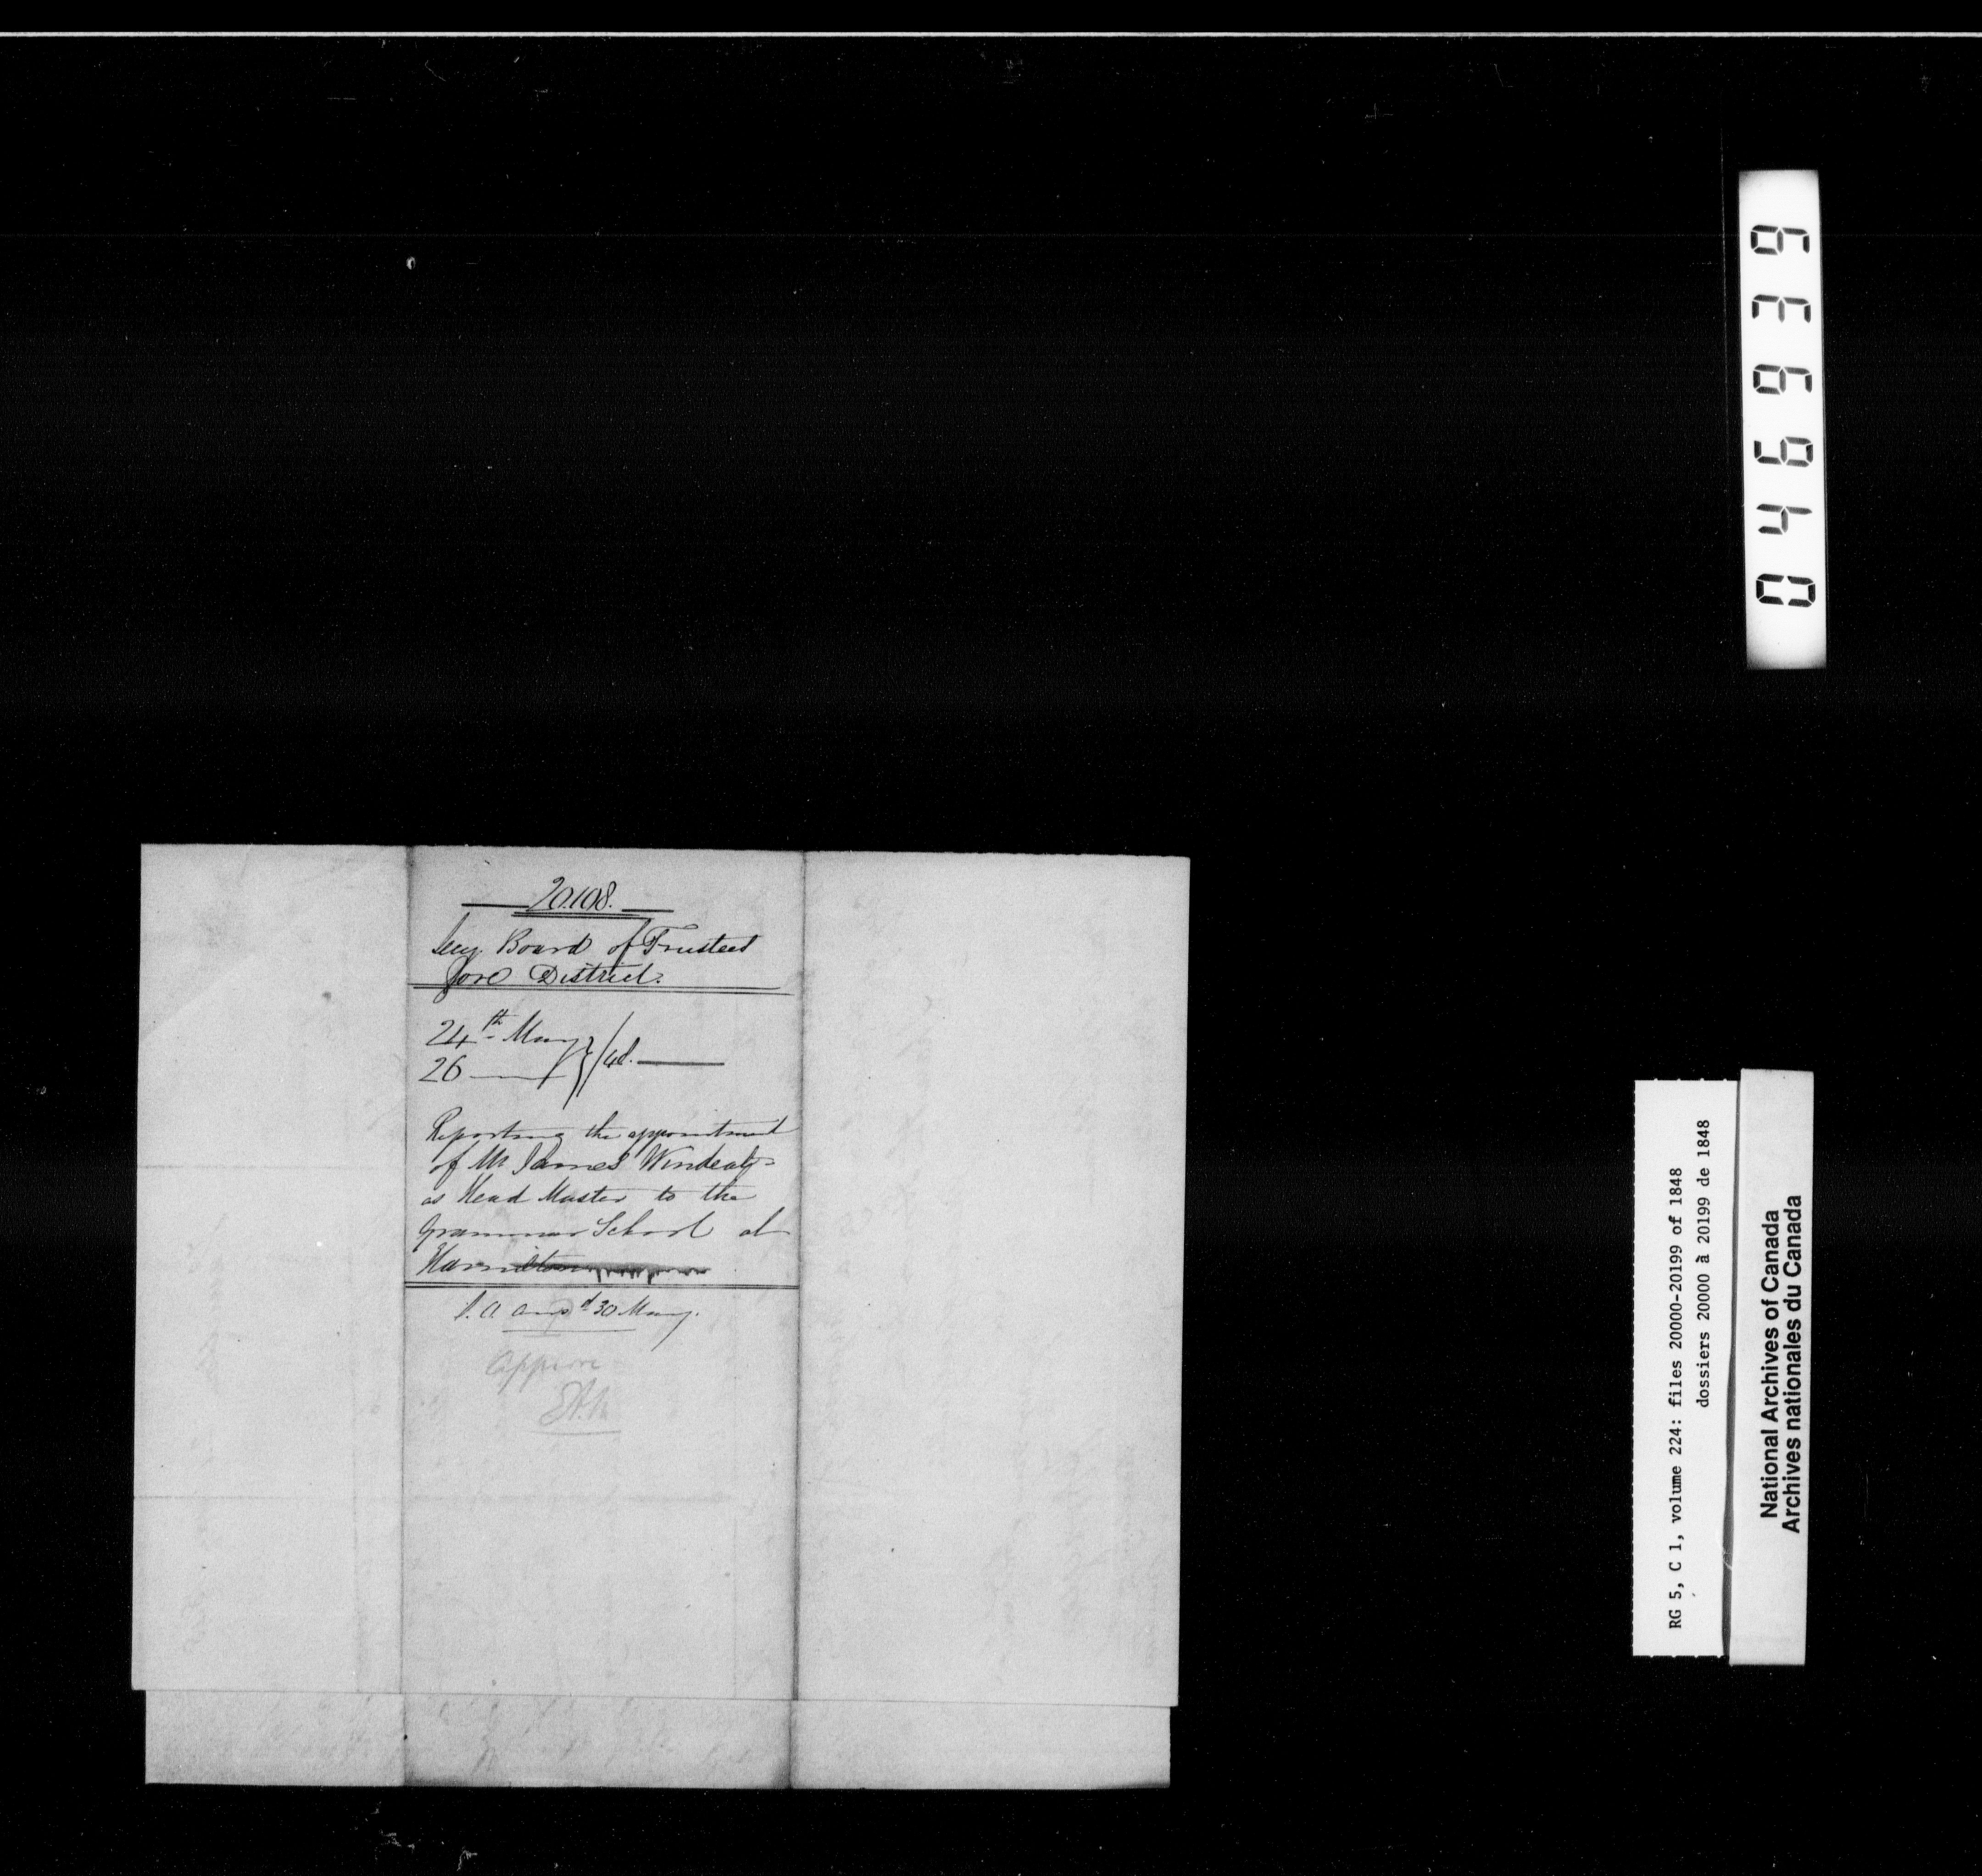 20.108.
Secy Board of Trustees
Gore District.
24th May } /48.
26 — }
Reporting the appointment
of Mr James Windeat
as Head Master to the
Grammar School at
Hamilton
ansd 30 May.
Approve
046939
RG 5, C 1, volume 224: files 20000-20199 of 1848
dossiers 20000 à 20199 de 1848
National Archives of Canada
Archives nationales du Canada